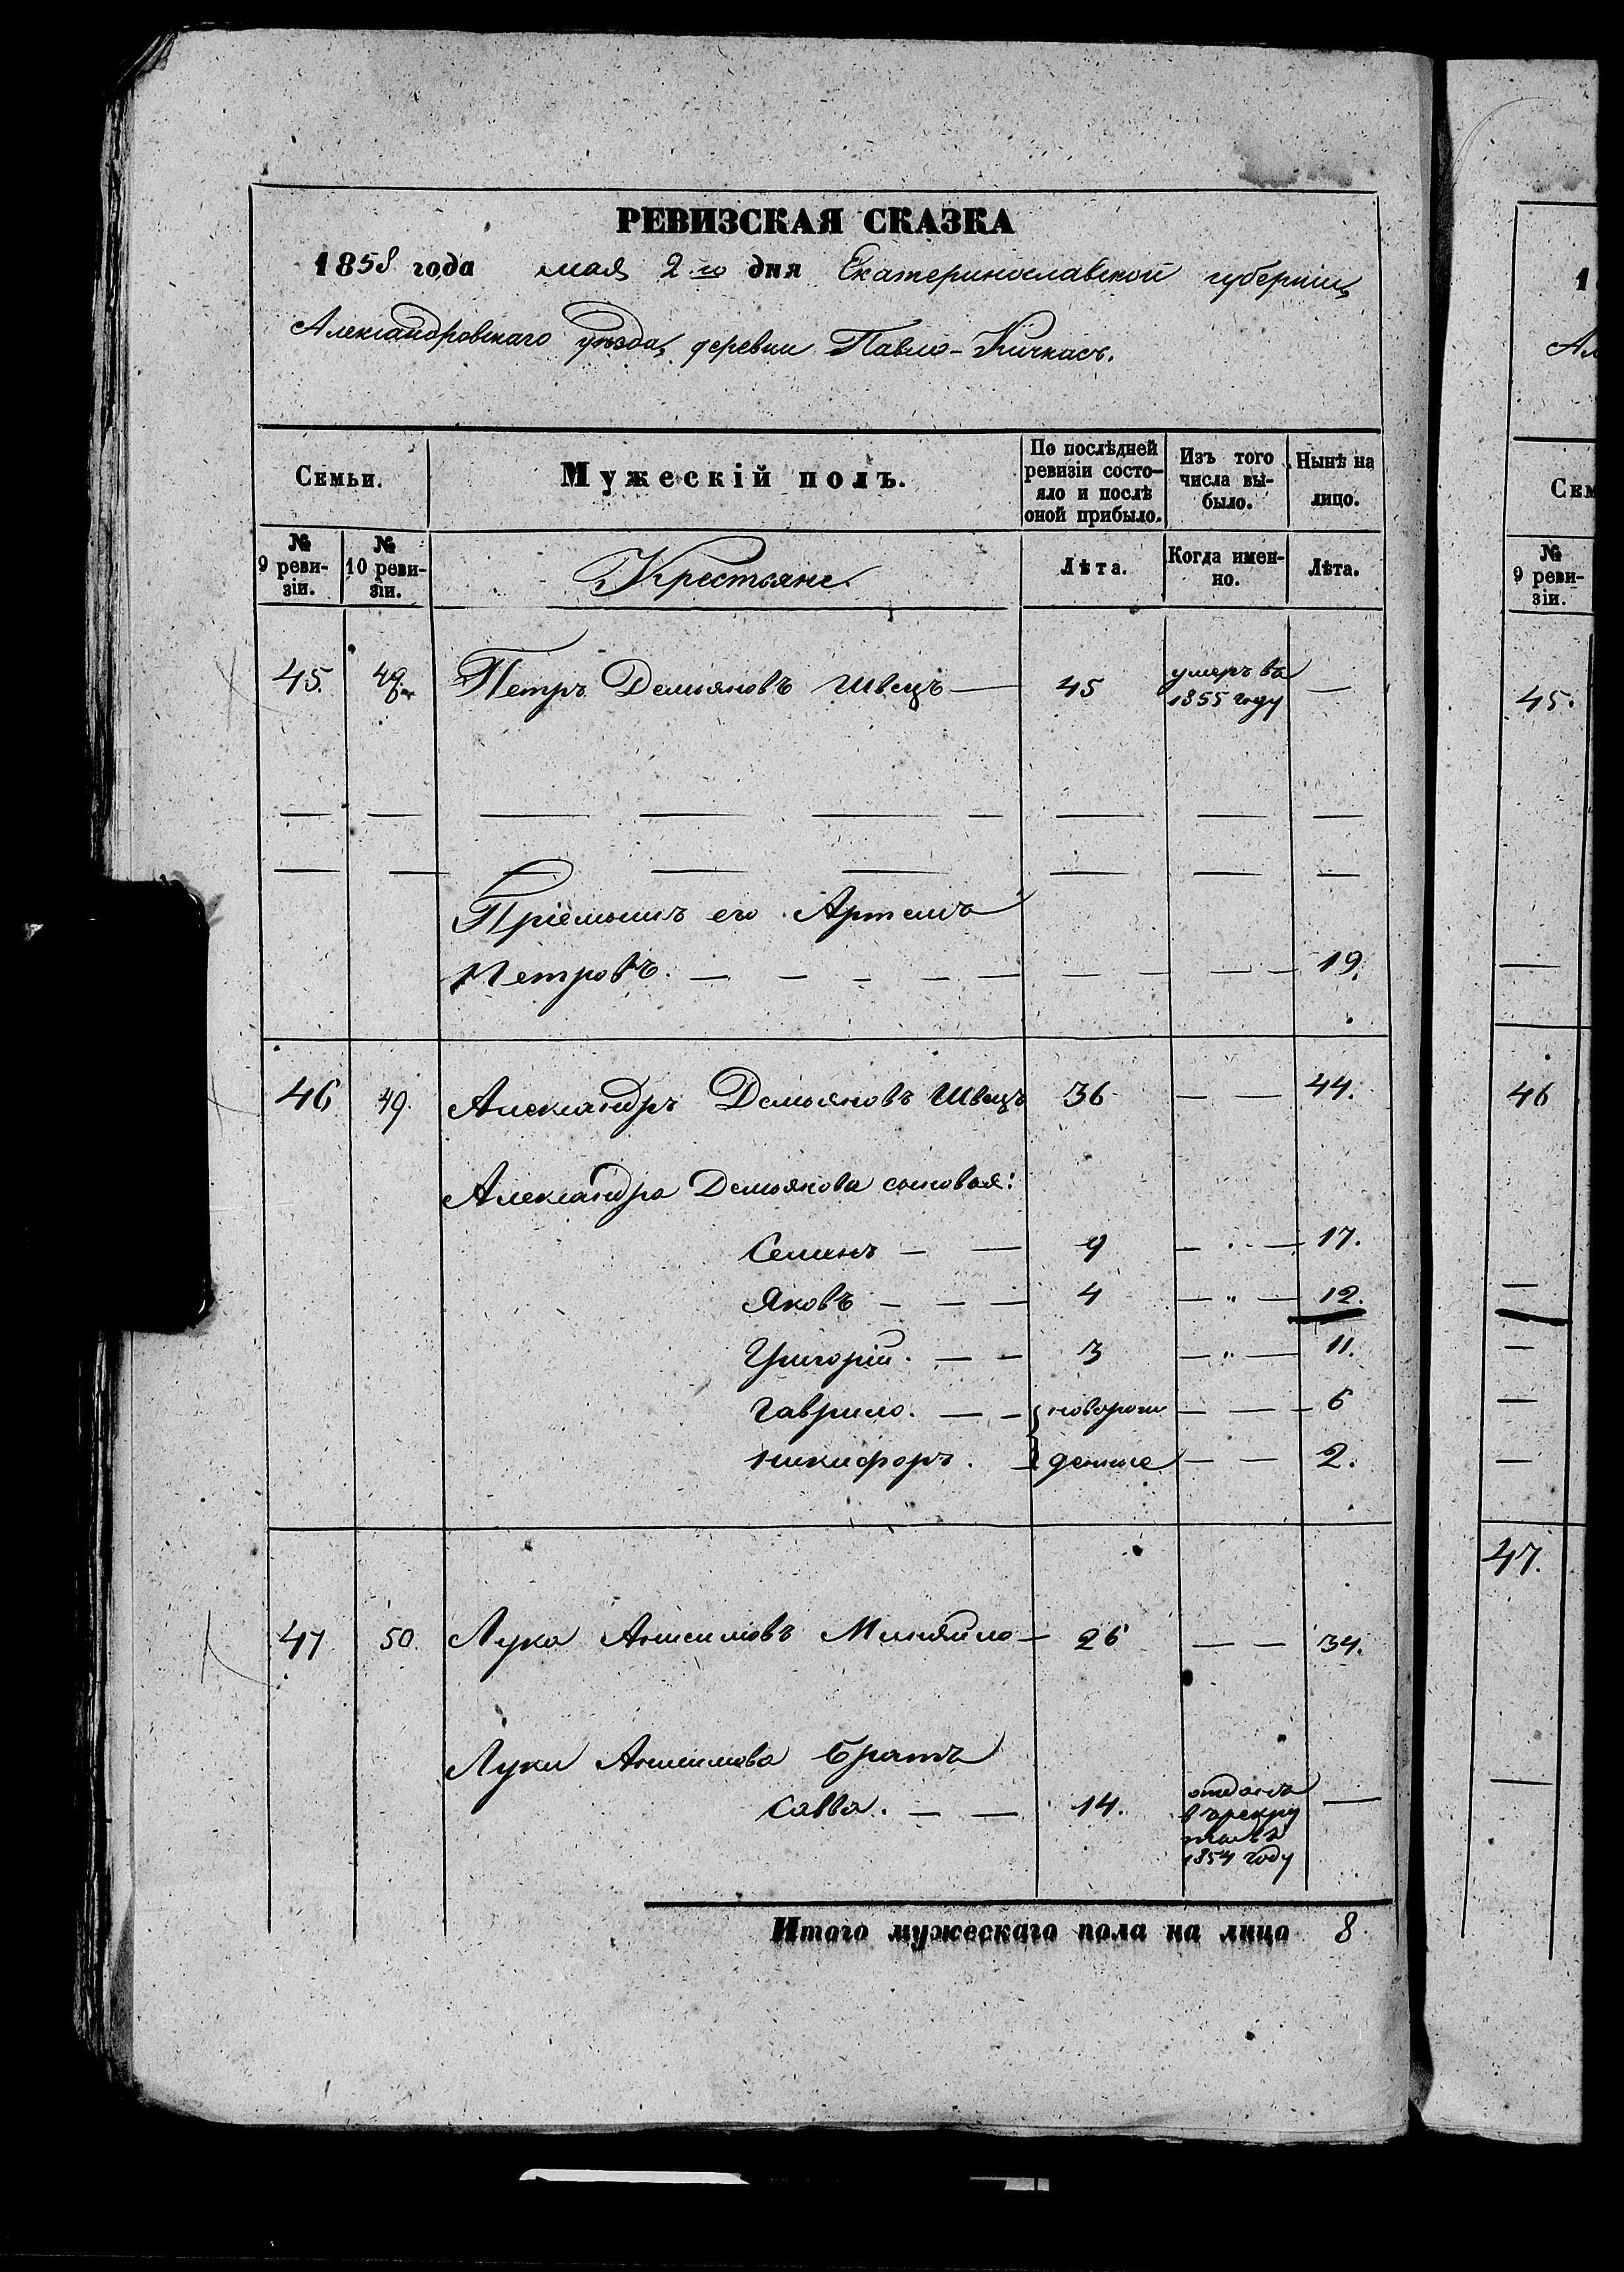 РЕВИЗСКАЯ СКАЗКА
1858 года мая 2го дня Екатеринославской губернии,
Александровскаго уѣзда, деревни Павло-Кичкасъ.
Семьи.
Мужескій полъ.
По послѣдней ревизіи состояло и послѣ оной прибыло.
Изъ того числа выбыло.
Нынѣ на лицо.
№ 9 ревизіи.
№ 10 ревизіи.
Крестьяне.
Лѣта.
Когда именно.
Лѣта.
45. 48. Петръ Демьяновъ Швецъ — 45 умеръ въ 1855 году —
Пріемышъ его Артемъ
Петровъ. — — — — — — — — — 19.
46 49. Александръ Демьяновъ Швецъ 36 — — 44.
Александра Демьянова сыновья:
Семенъ — — 9 — — 17.
Яковъ — — — 4 — " — 12.
Григорій. — — 3 — " — 11.
Гаврило. — — новорож — — 6
Никифоръ. — денные — — 2.
47 50. Лука Анисимовъ — 26 — — 34.
Луки Анисимова братъ
Савва. — — 14. отданъ в рекруты въ 1854 году —
Итого мужескаго пола на лицо 8
1
Ал
Сем
№ 9 ревизіи.
45.
46
47.